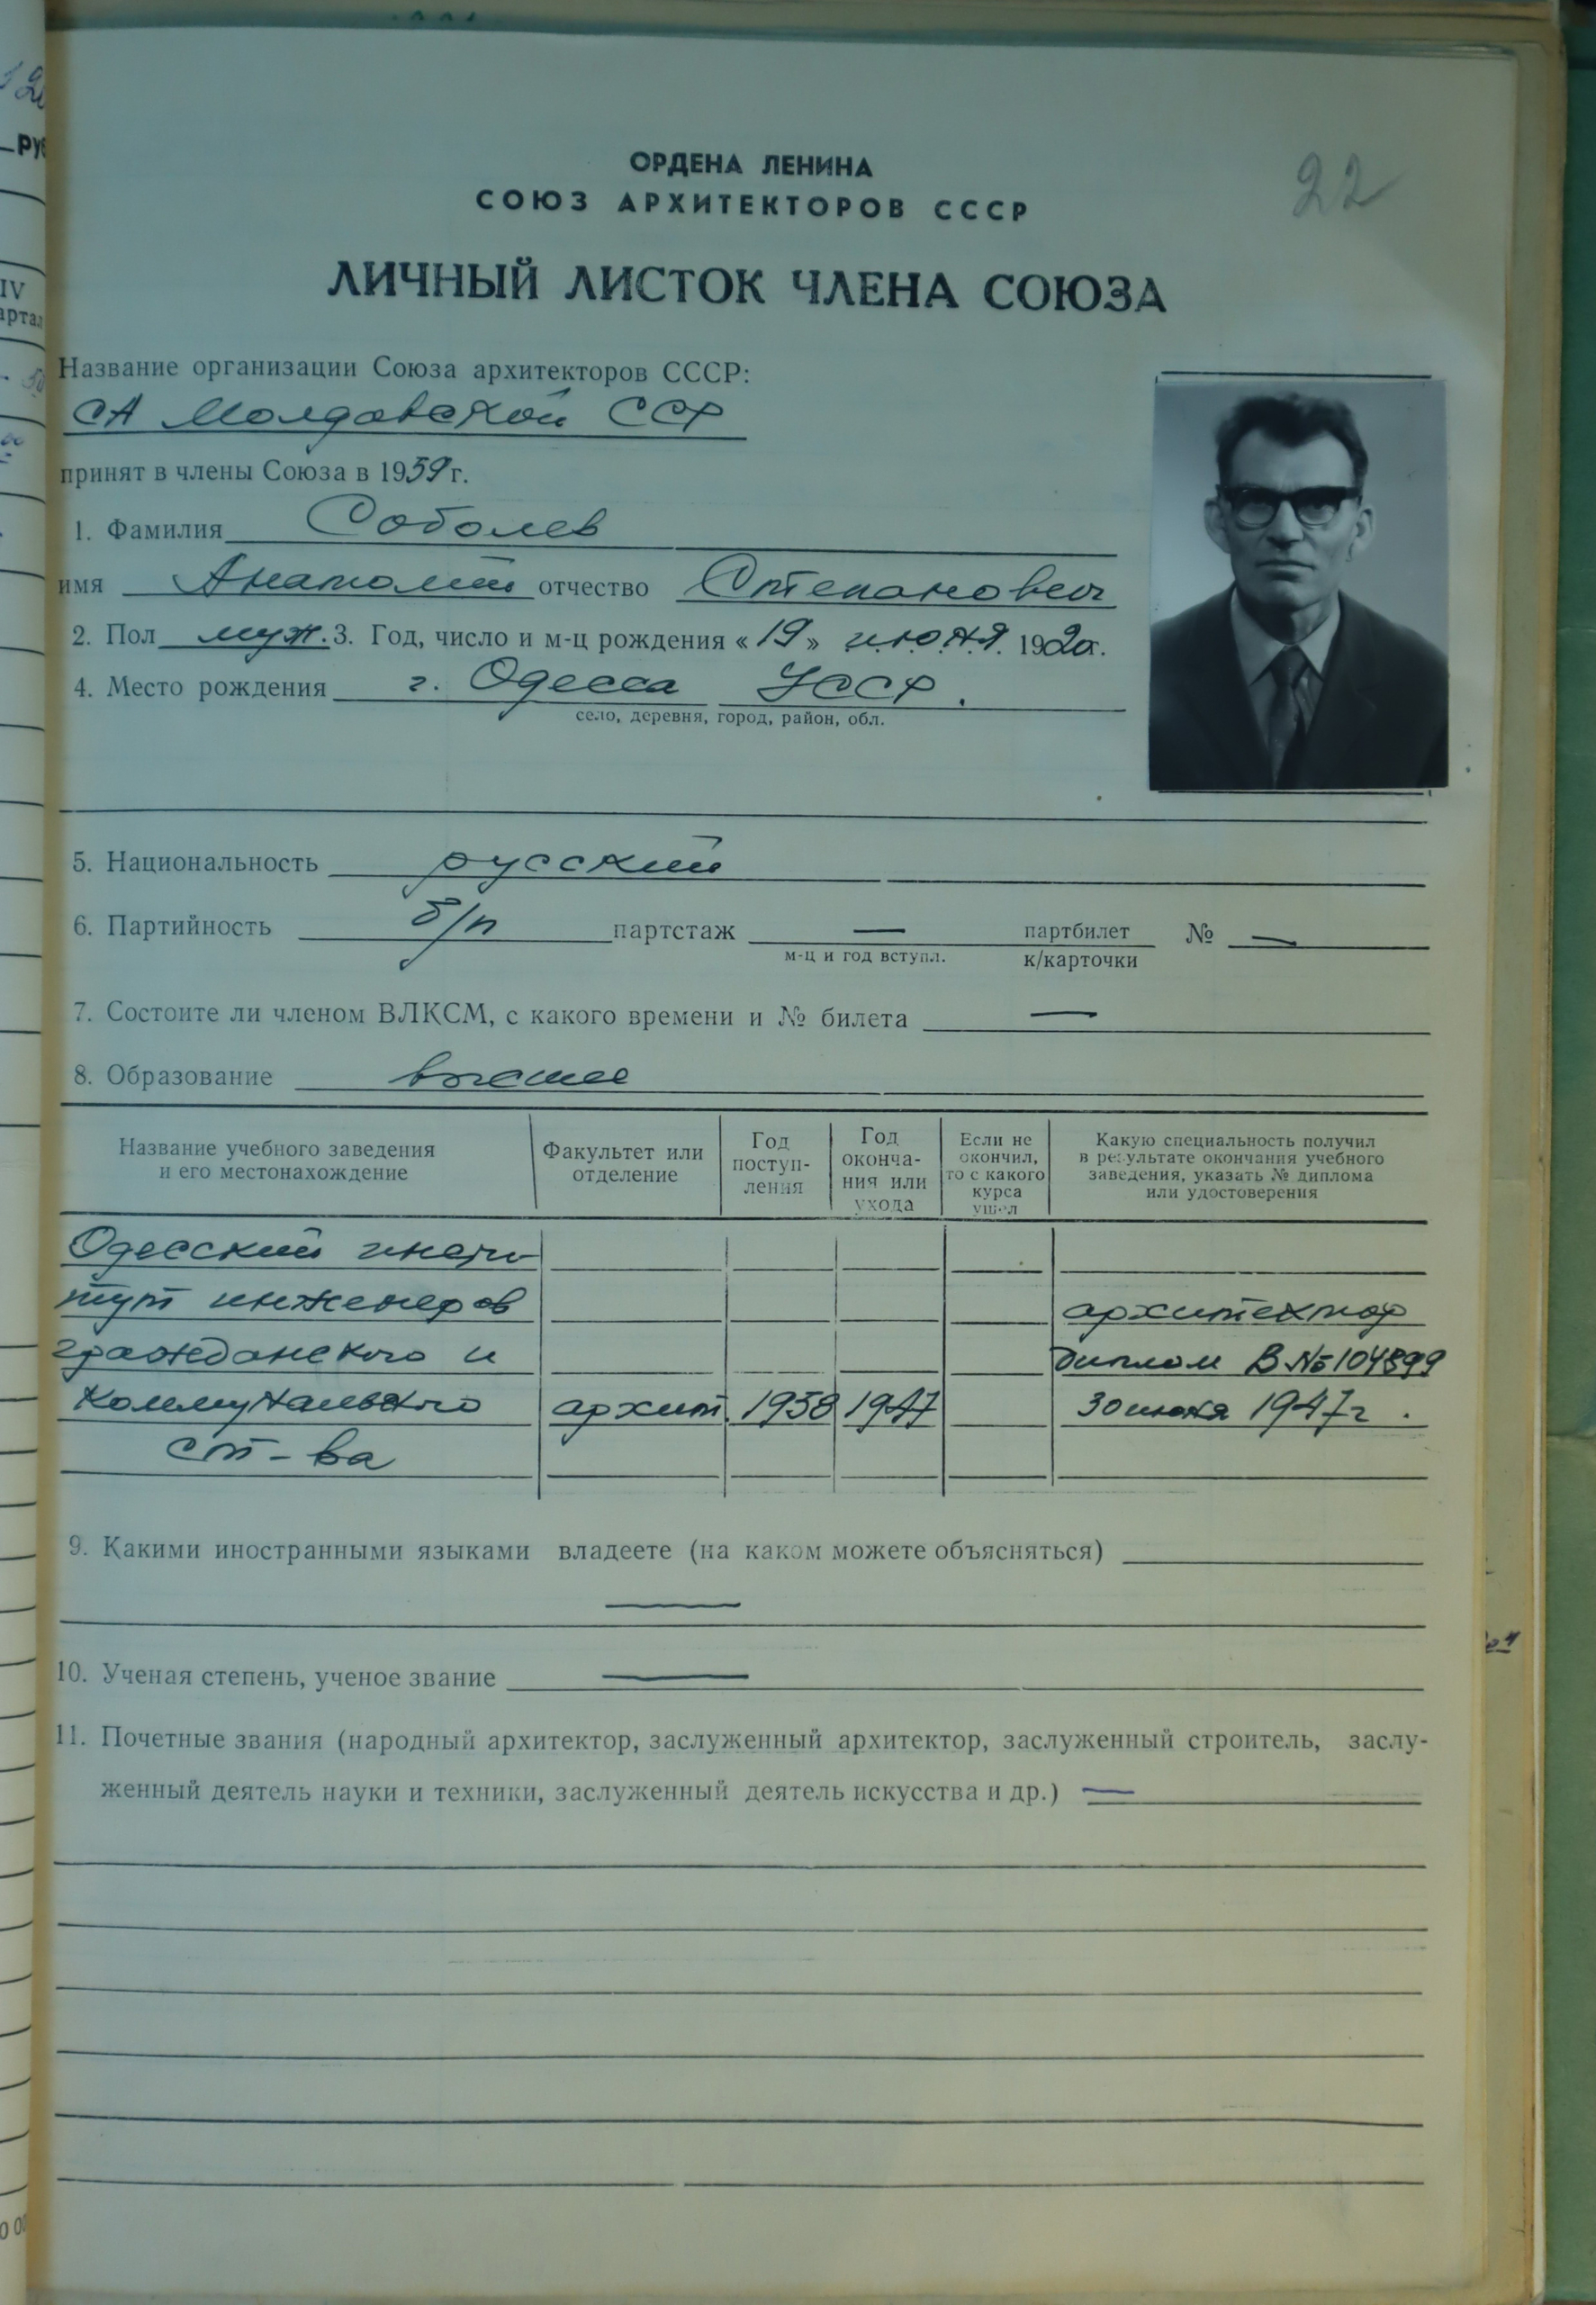 22
ОРДЕНА ЛЕНИНА
СОЮЗ АРХИТЕКТОРОВ СССР
ЛИЧНЫЙ ЛИСТОК ЧЛЕНА СОЮЗА
Название организации Союза архитекторов СССР:
СА Молдавской ССР
принят в члены Союза в 1959 г.
1. Фамилия Соболев
имя Анатолий отчество Степанович
2. Пол муж. 3. Год, число и м-ц рождения «19» июня 1920г.
4. Место рождения г. Одесса УССР.
село, деревня, город, район, обл.
5. Национальность русский
6. Партийность б/п партстаж — партбилет № —
м-ц и год вступл. к/карточки
7. Состоите ли членом ВЛКСМ, с какого времени и № билета —
8. Образование высшее
Название учебного заведения и его местонахождение
Факультет или отделение
Год поступ-ления
Год оконча-ния или ухода
Если не окончил, то с какого курса ушел
Какую специальность получил в результате окончания учебного заведения, указать № диплома или удостоверения
Одесский инсти-
тут инженеров архитектор
гражданского и диплом В № 104899
коммунального архит. 1938 1947 30 июня 1947 г.
ст-ва
9. Какими иностранными языками владеете (на каком можете объясняться)
—
10. Ученая степень, ученое звание —
11. Почетные звания (народный архитектор, заслуженный архитектор, заслуженный строитель, заслу-
женный деятель науки и техники, заслуженный деятель искусства и др.) —